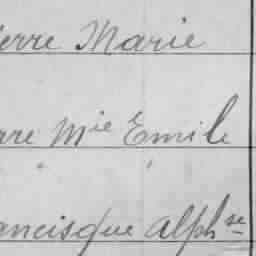 ierre Marie
rre Mie Emile
ancisque Alphse